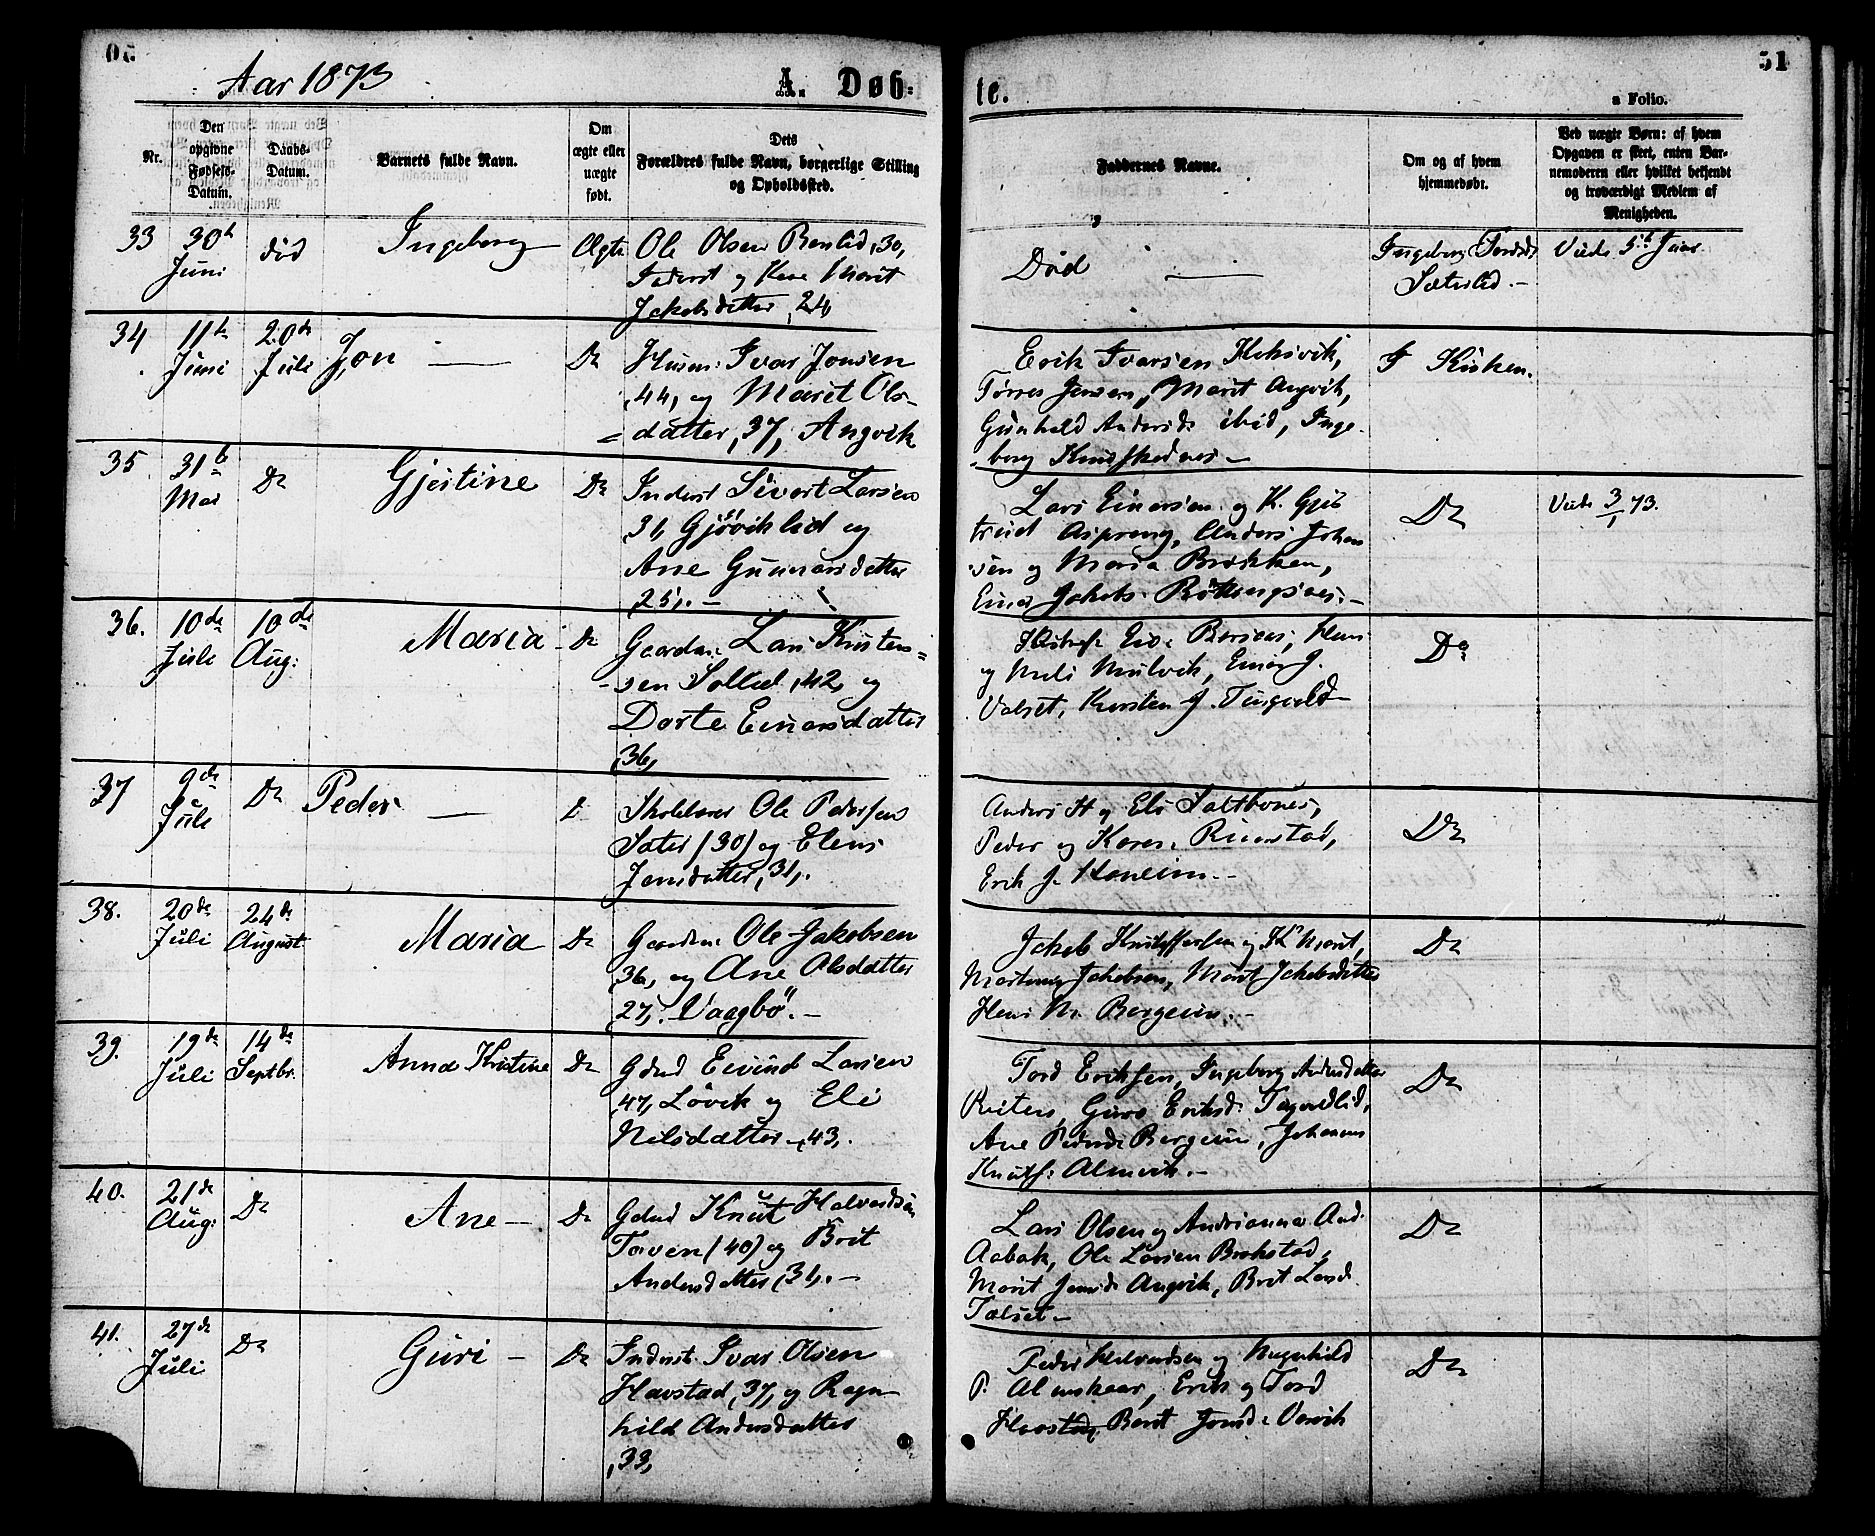 Aar 1873
A. Døb-
te.
51
a Folio.
Nr.
Den opgivne Fødsels-Datum.
Daabs-Datum.
Barnets fulde Navn.
Om ægte eller uægte født.
Dets Forældres fulde Navn, borgerlige Stilling og Opholdssted.
Faddernes Navne.
Om og af hvem hjemmedøbt.
Ved uægte Børn: af hvem Opgaven er skeet, enten Barnemoderen eller hvilket bekjendt og troværdigt Medlem af Menigheden.
33 30te Juni død Ingeborg Ægte
Ole Olsen Renlid, 30,
Inderst og Kone Marit
Jakobsdatter, 24,
Død —
Ingeborg Tordsd.
Sæterlid. —
Viede 5te Janr
34 11te Juni 20de Juli Jon — Do
Husm: Ivar Jonsen
44, og Marit Ols-
datter, 37, Angvik
Erik Ivarsen
Tørres Jensen, Marit Angvik,
Gunhild Andersd. ibid, Inge-
borg
I Kirken.
35 31te Mai Do Gjertine Do
Inderst Sivert Larsen
31, Gjøviklid og
Ane Gunnarsdatter
25,. —
Lars Einarsen og K. Gjer
trud Aspeng, Anders Johan
sen og Maria Brekken,
Einar Jakobs.
Do
Viede 3/1 73.
36. 10de Juli 10de Aug: Maria Do
Gaardm: Lars Kristen-
sen Sollid, 42, og
Dorte Einarsdatter
36,
og Meli Mulvik, Einar J.
Valset, Kirsten J. Tingvold
Do
37 9de Juli Do Peder — D
Skolelærer Ole Pedersen
Sæter (30) og Eleni
Jonsdatter, 31,.
Anders H og Eli Saltbones,
Peder og Karen Rimstad,
Erik J. Honeim. —
Do
38. 20de Juli 24de August Maria Do
Gaardm: Ole Jakobsen
36, og Ane Olsdatter
27,. Vaagbö. —
Jakob Kristoffersen og K Marit,
Martinus Jakobsen, Marit Jakobsdatter
Hans N. Bergeim. —
Do
39. 19de Juli 14de Septbr. Anna Kristine Do
Gdmd Eivind Larsen
47, Lövik og Eli
Nilsdatter —, 43,.
Tord Eriksen, Ingeborg Andersdatter
Guro Eriksd.
Ane Pedersd. Bergeim, Johannes
Knuts: Almvik. —
Do
40. 21de Aug: Do Ane — Do
Gdmd Knut Halvordsen
Toven (40) og Brit
Andersdatter, 31,. —
Lars Olsen og Andrianna And.
Aabak, Ole Larsen Brokstad,
Marit Jonsd. Angvik, Brit Larsd.
Talset —
Do
41. 27de Juli Do Guri — Do
Inderst Ivar Olsen
Havstad, 37, og Ragn
hild Andersdatter
, 33,
Peder Halvordsen og Magnhild
P. Almskaar, Erik og Tord
Havstad, Berit Jonsd:
Do